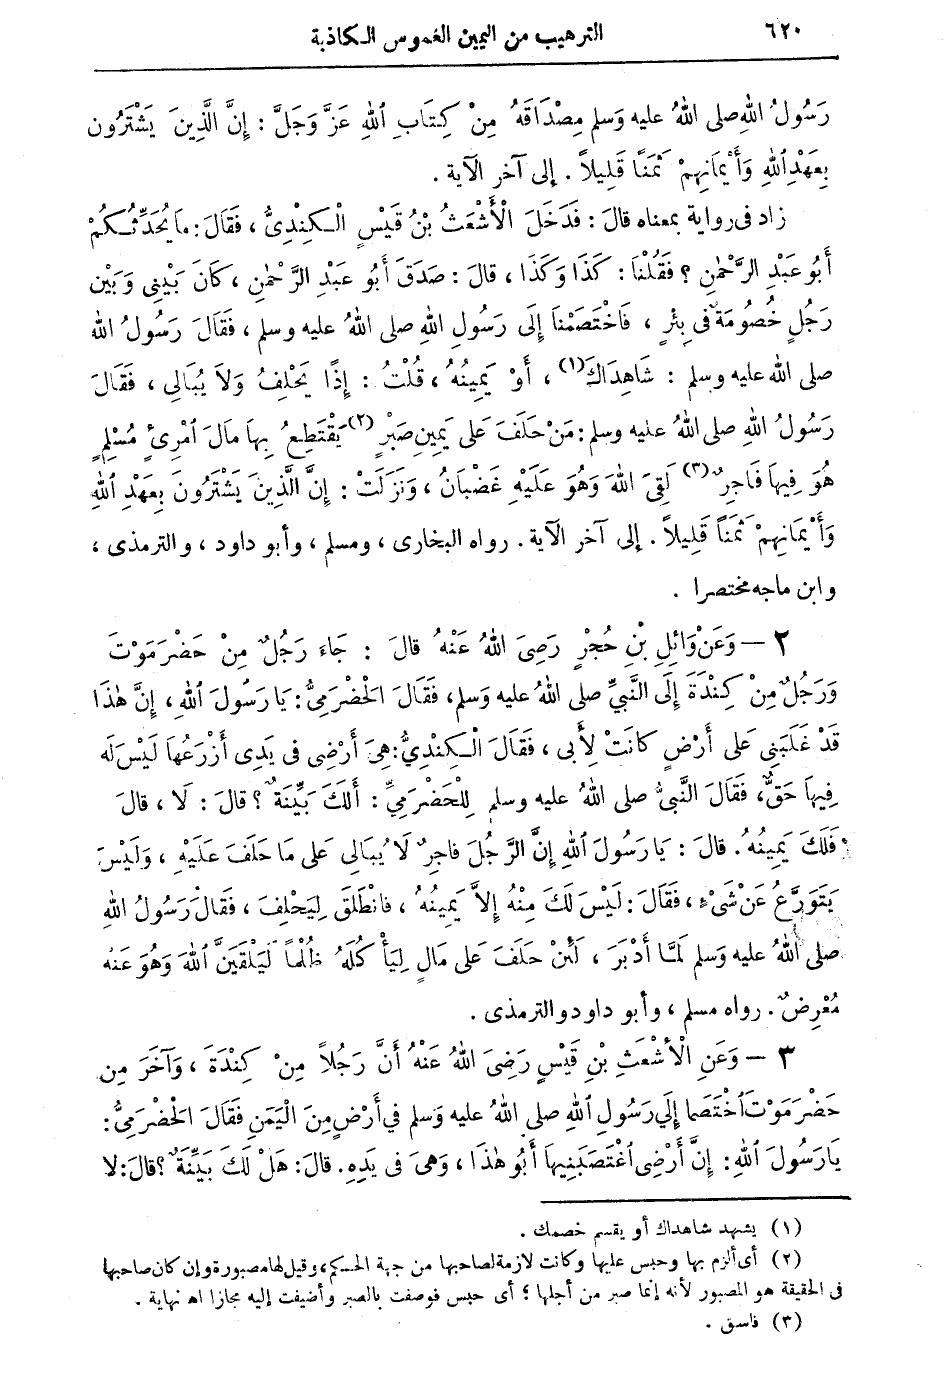 ٦٢٠ الترهيب من اليمين الغموس الكاذبة
رَسُولُ اللهِ صلى اللهُ عليه وَسلم مِصْدَاقَهُ مِنْ كِتَابِ اللهِ عَزَّ وَجَلَّ : إِنَّ الَّذِينَ يَشْتَرُونَ
بِعَهْدِ اللهِ وَأَيْمَانِهِمْ ثَمَنًا قَلِيلاً . إلى آخر الآية .
زاد فى رواية بمعناه قالَ : فَدَخَلَ الْأَشْعَثُ بْنُ قَيْسٍ الْكِنْدِىُّ ، فَقَالَ : مَا يُحَدِّثُكُمْ
أَبُو عَبْدِ الرَّحْمٰنِ ؟ فَقُلْنَا : كَذَا وَكَذَا ، قالَ : صَدَقَ أَبُو عَبْدِ الرَّحْمٰنِ ، كَانَ بَيْنِى وَبَيْنَ
رَجُلٍ خُصُومَةٌ فى بِئْرٍ ، فَاخْتَصَمْنَا إِلَى رَسُولِ اللهِ صلى اللهُ عليه وسلم ، فَقَالَ رَسُولُ اللهِ
صلى الله عليه وسلم : شَاهِدَاكَ (١) ، أَوْ يَمِينُهُ ، قُلْتُ : إِذًا يَحْلِفُ وَلاَ يُبَالِى ، فَقَالَ
رَسُولُ اللهِ صلى اللهُ عليه وسلم : مَنْ حَلَفَ عَلَى يَمِينِ صَبْرٍ (٢) يَقْتَطِعُ بِهَا مَالَ امْرِئٍ مُسْلِمٍ
هُوَ فِيهَا فَاجِرٌ (٣) لَقِىَ اللهَ وَهُوَ عَلَيْهِ غَضْبَانُ ، وَنَزَلَتْ : إِنَّ الَّذِينَ يَشْتَرُونَ بِعَهْدِ اللهِ
وَأَيْمَانِهِمْ ثَمَنًا قَلِيلاً . إلى آخر الآية . رواه البخارى ، ومسلم ، وأبو داود ، والترمذى ،
وابن ماجه مختصرا .
٢ – وَعَنْ وَائِلِ بْنِ حُجْرٍ رَضِىَ اللهُ عَنْهُ قالَ : جَاءَ رَجُلٌ مِنْ حَضْرَمَوْتَ
وَرَجُلٌ مِنْ كِنْدَةَ إِلَى النَّبِىِّ صلى اللهُ عليه وَسلم ، فَقَالَ الْحَضْرَمِىُّ : يَا رَسُولَ اللهِ ، إِنَّ هٰذَا
قَدْ غَلَبَنِى عَلَى أَرْضٍ كانَتْ لِأَبِى ، فَقَالَ الْكِنْدِىُّ : هِىَ أَرْضِى فى يَدِى أَزْرَعُهَا لَيْسَ لَهُ
فِيهَا حَقٌّ ، فَقَالَ النَّبِىُّ صلى اللهُ عليه وسلم لِلْحَضْرَمِىِّ : أَلَكَ بَيِّنَةٌ ؟ قالَ : لَا ، قالَ
فَلَكَ يَمِينُهُ . قالَ : يَا رَسُولَ اللهِ إِنَّ الرَّجُلَ فاجِرٌ لَا يُبَالِى عَلَى مَا حَلَفَ عَلَيْهِ ، وَلَيْسَ
يَتَوَرَّعُ عَنْ شَىْءٍ ، فَقَالَ : لَيْسَ لَكَ مِنْهُ إِلاَّ يَمِينُهُ ، فَانْطَلَقَ لِيَحْلِفَ ، فَقَالَ رَسُولُ اللهِ
صلى اللهُ عليه وَسلم لَمَّا أَدْبَرَ ، لَئِنْ حَلَفَ عَلَى مَالٍ لِيَأْكُلَهُ ظُلْمًا لَيَلْقَيَنَّ اللهَ وَهُوَ عَنْهُ
مُعْرِضٌ . رواه مسلم ، وأبو داود والترمذى .
٣ – وَعَنِ الْأَشْعَثِ بْنِ قَيْسٍ رَضِىَ اللهُ عَنْهُ أَنَّ رَجُلاً مِنْ كِنْدَةَ ، وَآخَرَ مِنِ
حَضْرَمَوْتَ اخْتَصَمَا إِلَى رَسُولِ اللهِ صلى اللهُ عليه وَسلم فِى أَرْضٍ مِنَ الْيَمَنِ فَقَالَ الْحَضْرَمِىُّ :
يَا رَسُولَ اللهِ : إِنَّ أَرْضِى اغْتَصَبَنِيهَا أَبُو هٰذَا ، وَهِىَ فى يَدِهِ . قالَ : هَلْ لَكَ بَيِّنَةٌ ؟ قالَ : لا
(١) يشهد شاهداك أو يقسم خصمك .
(٢) أى ألزم بها وحبس عليها وكانت لازمة لصاحبها من جهة الحكم ، وقيل لها مصبورة وإن كان صاحبها
فى الحقيقة هو المصبور لأنه إنما صبر من أجلها ؛ أى حبس فوصفت بالصبر وأضيفت إليه مجازا اه نهاية .
(٣) فاسق .